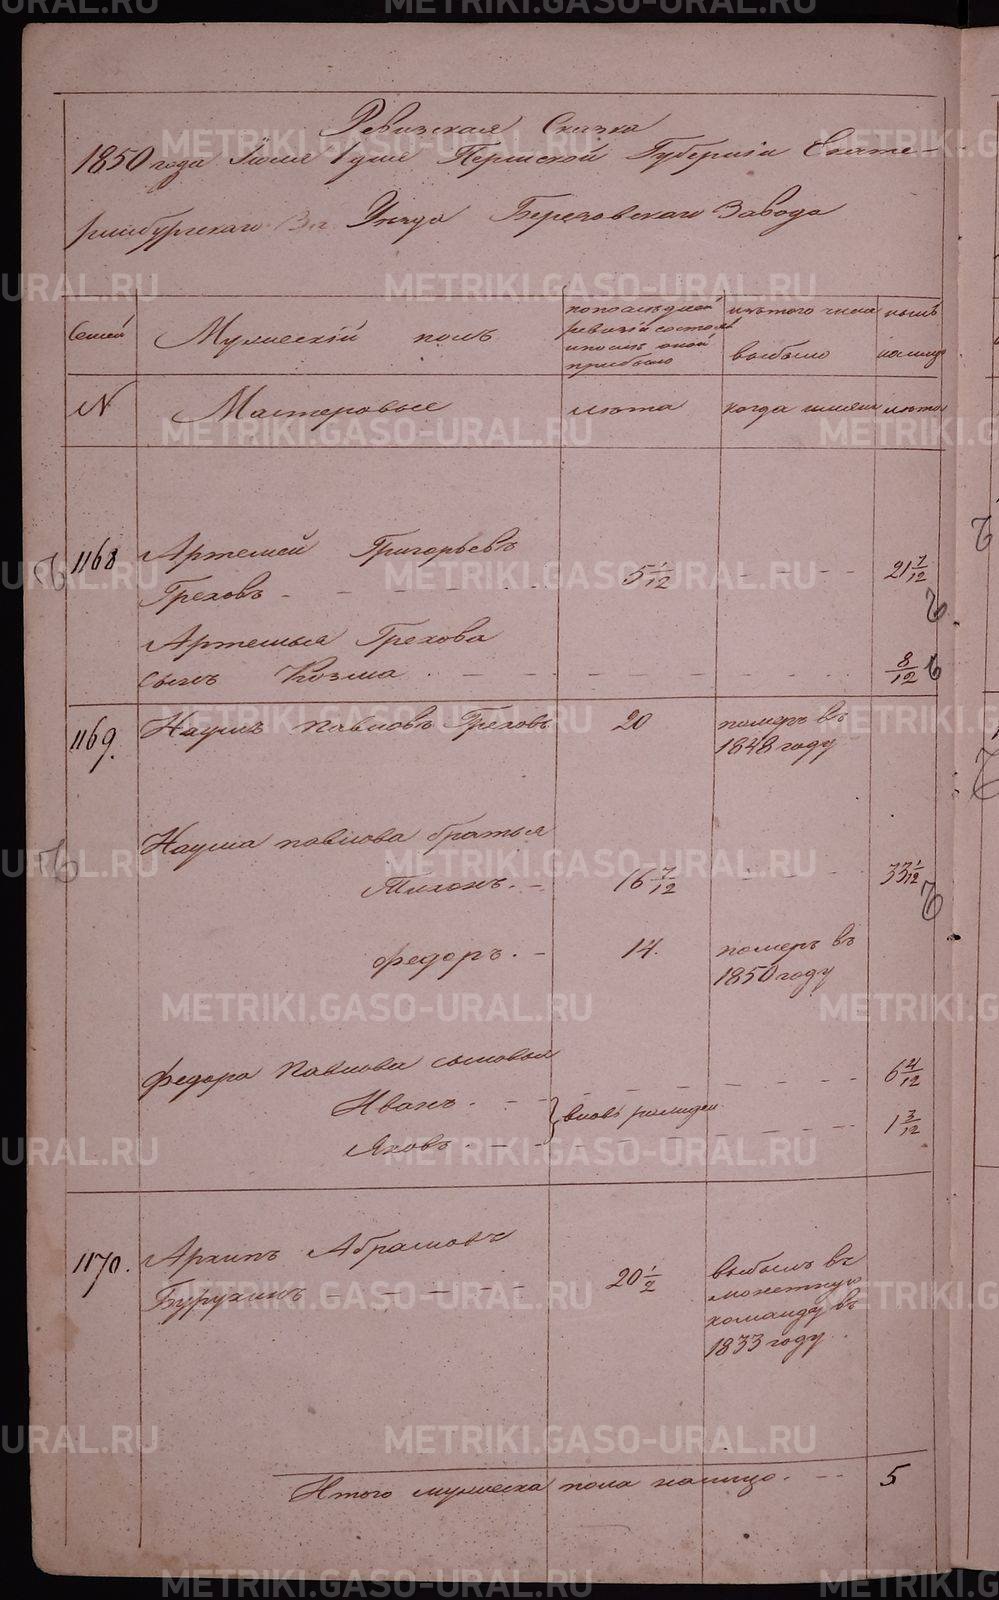 Ревизская Сказка
1850 года Июля 1 дня Пермской Губерніи Екате-
ринбургскаго Уезда Березовскаго Завода
Семей
Мужескій полъ
по последней
ревизіи состояло
и после оной
прибыло
изъ того числа
выбыло
ныне
на лицо
N
Мастеровые
лета
когда именно
лета
1168
Артемей Григорьевъ
Греховъ - - - - - - 5 1/12 - - - - 21 7/12
Артемья Грехова
сынъ Козма - - - - - - 8/12
1169.
Наумъ Павловъ Греховъ 20 померъ въ
1848 году
Наума Павлова братья
Тихонъ. - 16 7/12 - - - - 33 1/12
Федоръ. - 14. померъ въ
1850 году
Федора Павлова сыновья
Иванъ. - - - - - - 6 4/12
вновь рожден
Яковъ. - - - - - - 1 3/12
1170.
Архипъ Абрамовъ
Бурухинъ - - - - - 20 1/2 выбылъ въ
монетную
команду въ
1833 году.
Итого мужеска пола налицо. - - 5
METRIKI.GASO-URAL.RU